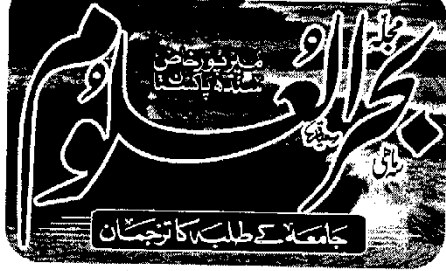 مجلہ
بحر العلوم
سہ ماہی
میرپورخاص
سندھ پاکستان
جامعہ کے طلبہ کا ترجمان